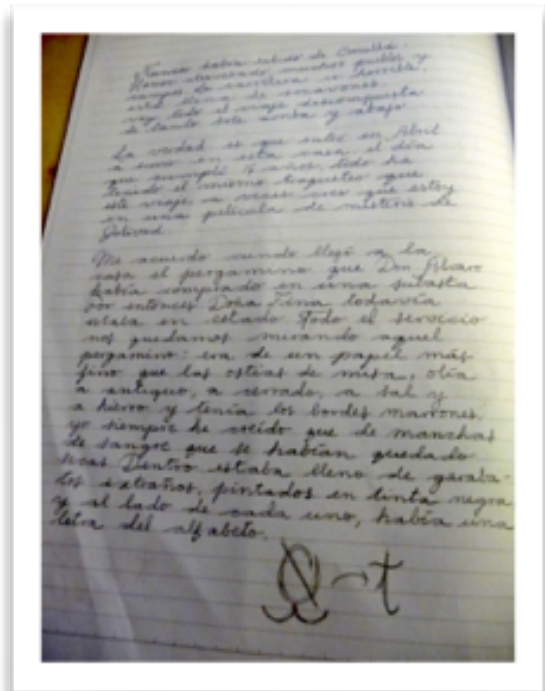 Nunca había salido de Comillas.
Hemos atravesado muchos pueblos y
campos. La carretera es horrible,
está llena de socavones.
voy todo el viaje descompuesta
de tanto bote arriba y abajo
La verdad es que entré en Abril
a servir en esta casa, el día
que cumplí años, todo ha
tenido el mismo traqueteo que
este viaje, a veces creo que estoy
en una película de misterio de
Me acuerdo cuando llegó a la
casa el pergamino que Don Álvaro
había comprado en una subasta
por entonces Doña todavía
estaba en estado Todo el servicio
nos quedamos mirando aquel
pergamino: era de un papel más
fino que las ostias de misa, olía
a antiguo, a cerrado, a sal y
a hierro y tenía los bordes marrones,
yo siempre he creído que de manchas
de sangre que se habían quedado
secas Dentro estaba lleno de garaba-
tos extraños, pintados en tinta negra
y al lado de cada uno, había una
letra del alfabeto.
t